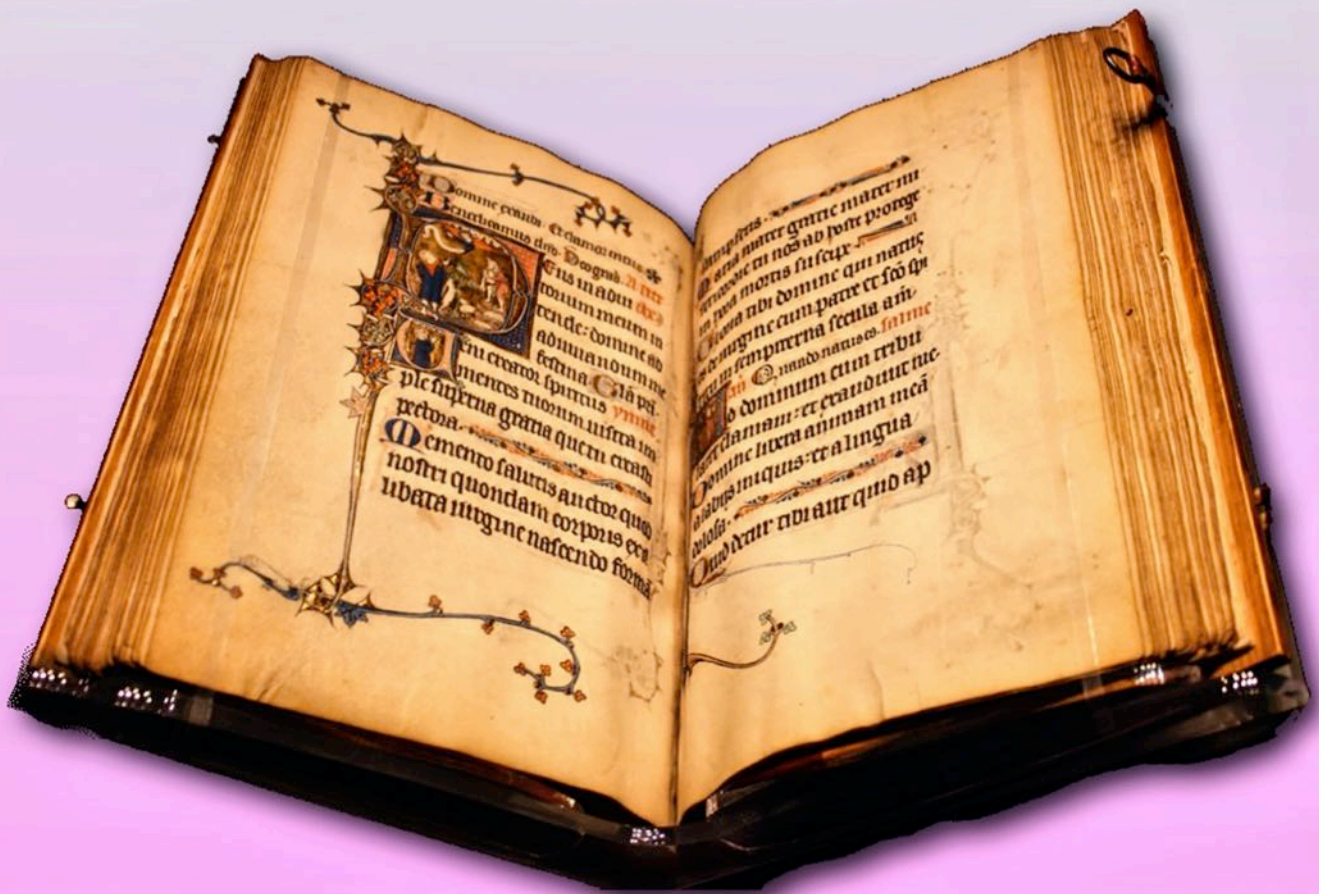 Domine exaudi. Et clamor meus
Benedicamus dno. Deo grās. A tier
Eus in adiu ce
torium meum in
tende: domine ad
adiuuandum me
festina Glā pa.
Ueni creator spiritus ympne
mentes tuorum uisita im
ple superna gratia que tu creasti
pectora.
Memento salutis auctor quod
nostri quondam corporis ex il
libata uirgine nascendo formā
sumpseris.
Maria mater gratie mater mi
sericordie tu nos ab hoste protege
in hora mortis suscipe
Gloria tibi domine qui natus
es de uirgine cum patre et sc̄o spi
ritu in sempiterna secula am̄.
an̄ Quando natus es. saume
Ad dominum cum tribu
larer clamaui: et exaudiuit me.
Domine libera animam meā
a labiis iniquis: et a lingua
dolosa.
Quid detur tibi aut quid ap